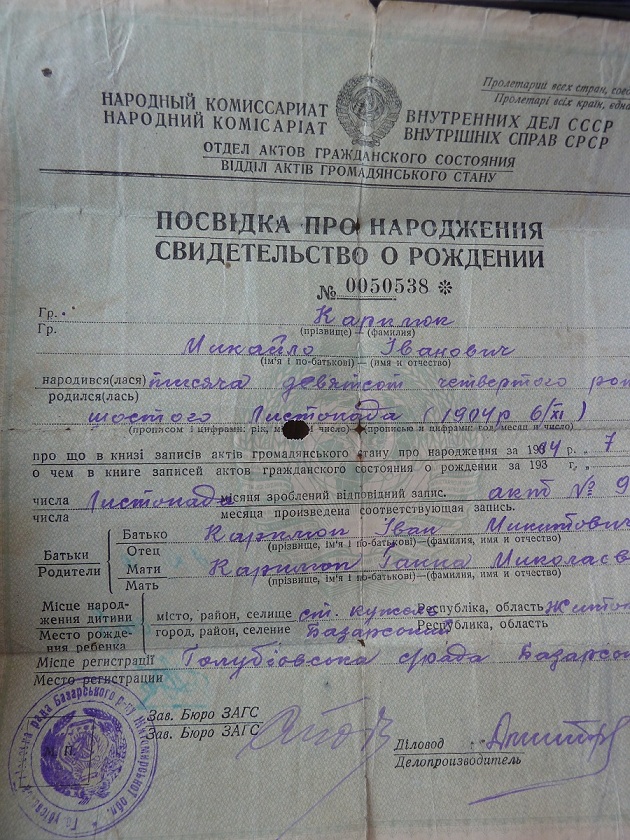 Пролетарии всех стран, сое
Пролетарі всіх країн, єдна
НАРОДНЫЙ КОМИССАРИАТ ВНУТРЕННИХ ДЕЛ СССР
НАРОДНИЙ КОМІСАРІАТ ВНУТРІШНІХ СПРАВ СРСР
ОТДЕЛ АКТОВ ГРАЖДАНСКОГО СОСТОЯНИЯ
ВІДДІЛ АКТІВ ГРОМАДЯНСЬКОГО СТАНУ
ПОСВІДКА ПРО НАРОДЖЕННЯ
СВИДЕТЕЛЬСТВО О РОЖДЕНИИ
№ 0050538 *
Гр. Карилюк
Гр. (прізвище) — (фамилия)
Михайло Іванович
(ім'я і по-батькові) — (имя и отчество)
народився(лася) тисяча девятсот четвертого рок
родился(лась)
шостого Листопада (1904 р 6/XI)
(прописом і цифрами: рік, місяць і число) — (прописью и цифрами: год, месяц и число)
про що в книзі записів актів громадянського стану про народження за 1904 р. „ 7
о чем в книге записей актов гражданского состояния о рождении за 193 г. „
числа Листопада місяця зроблений відповідний запис. акт № 9
числа месяца произведена соответствующая запись.
Батьки Батько Іван Микитович
Родители Отец (прізвище, ім'я і по-батькові) — (фамилия, имя и отчество)
Мати Ганна Миколаєв
Мать (прізвище, ім'я і по-батькові) — (фамилия, имя и отчество)
Місце народження дитини місто, район, селище ст. Республіка, область Житом
Место рождения ребенка город, район, селение Базарський Республика, область
Місце регистрації с/рада Базарськ
Место регистрации
Зав. Бюро ЗАГС
Зав. Бюро ЗАГС
Діловод
Делопроизводитель
М. П.